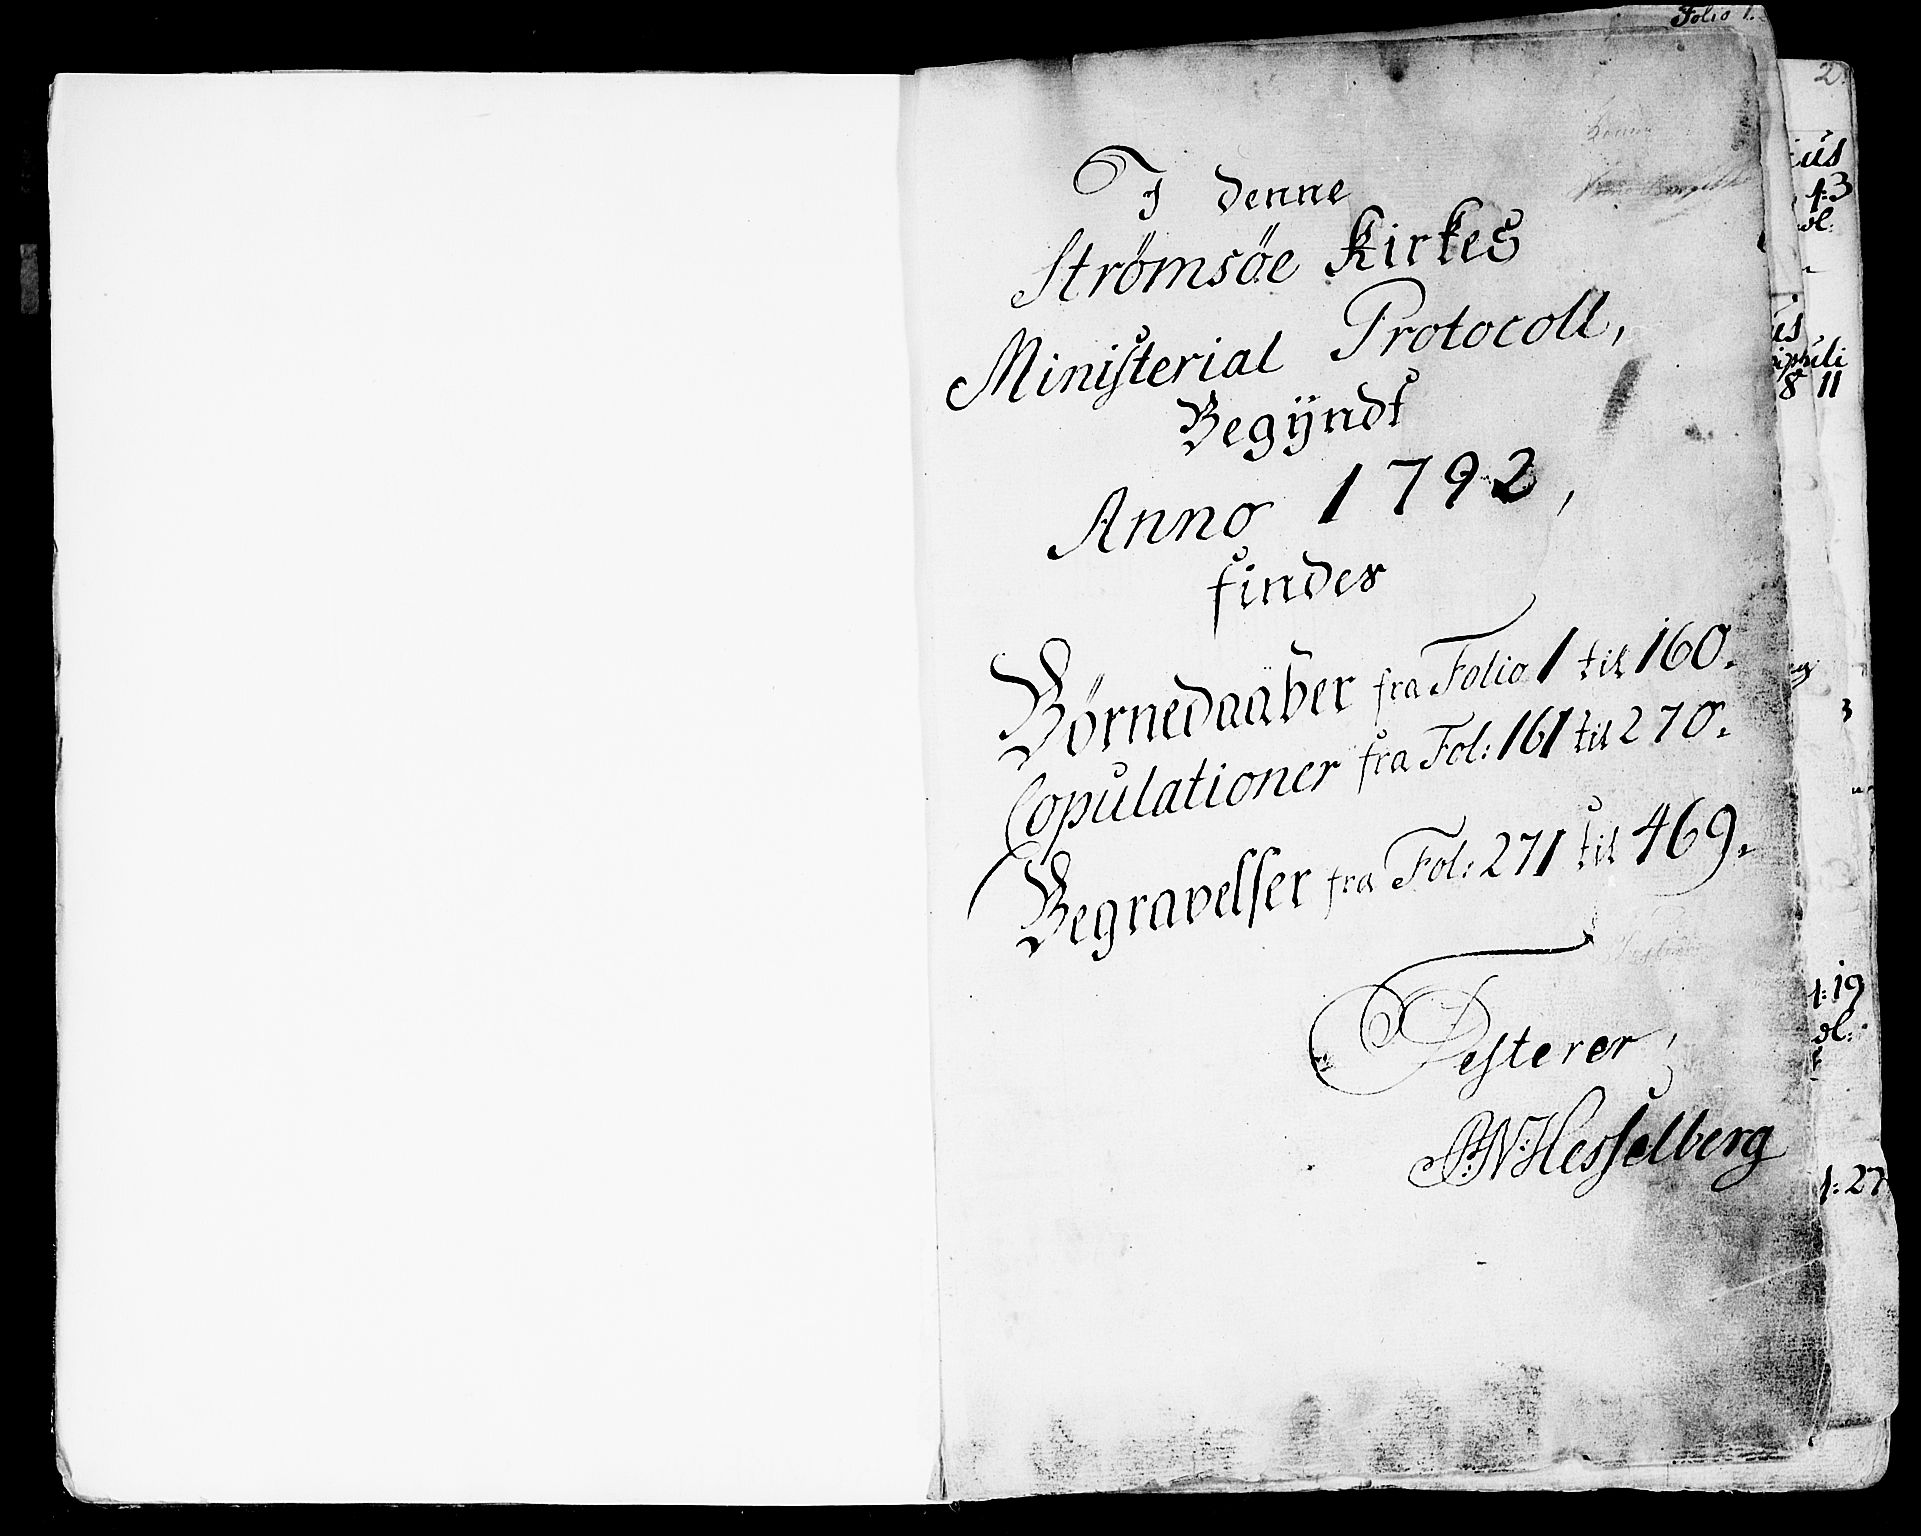 Folio 1.
2
I denne
Strømsøe Kirkes
Ministerial Protocoll,
Begÿndt
Anno 1792,
findes
Børnedaaber fra Folio 1 til 160.
Copulationer fra Fol: 161 til 270.
Begravelser fra Fol: 271 til 469.
Testerer,
Hesselberg
us
4:3
ol:
us
8 11
3
1:19
ol:
1:27